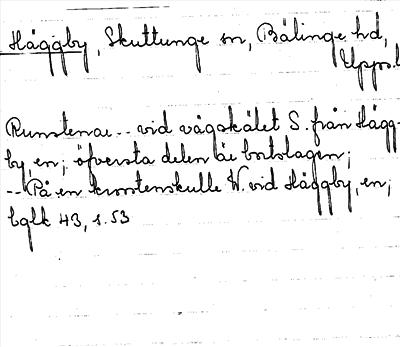 Håggby, Skuttunge sn, Bälinge hd,
Upps.l
Runstenar -- vid vägskälet S. från Hågg-
by, en; öfversta delen är bortslagen;
-- På en krosstenskulle W. vid Håggby, en;
bglk 43, s. 53